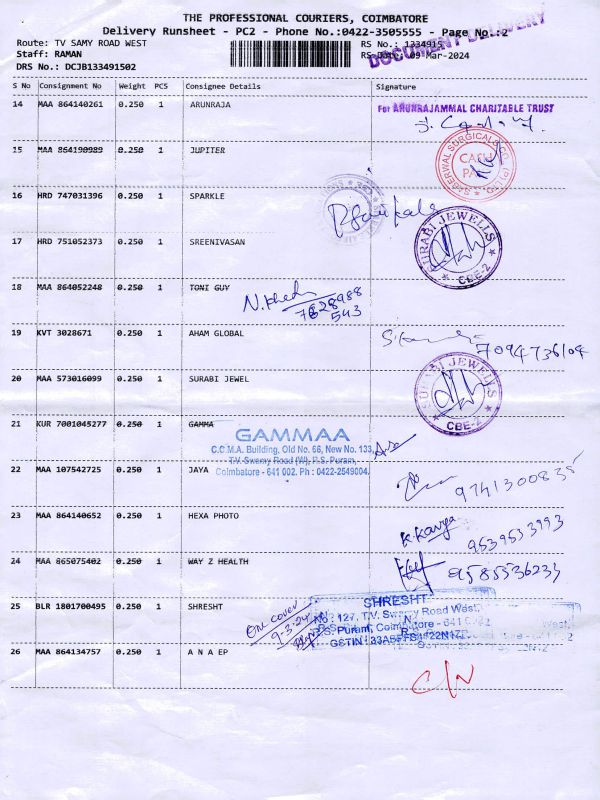 THE PROFESSIONAL COURIERS, COIMBATORE
Delivery Runsheet - PC2 - Phone No.:0422-3505555 - Page No.:2
DOCUMENT DELIVERY
Route: TV SAMY ROAD WEST
RS No.: 1334915
Staff: RAMAN
RS Date: 09-Mar-2024
DRS No.: DCJB133491502
S No Consignment No Weight PCS Consignee Details Signature
14 MAA 864140261 0.250 1 ARUNRAJA
For ARUNRAJAMMAL CHARITABLE TRUST
15 MAA 864190989 0.250 1 JUPITER
SABERWAL SURGICALS CO. (P) LTD.
16 HRD 747031396 0.250 1 SPARKLE
17 HRD 751052373 0.250 1 SREENIVASAN
SURABI JEWELLS
CBE-2
18 MAA 864052248 0.250 1 TONI GUY
7628988
543
19 KVT 3028671 0.250 1 AHAM GLOBAL
7094736104
20 MAA 573016099 0.250 1 SURABI JEWEL
SURABI JEWELLS
CBE-2
21 KUR 7001045277 0.250 1 GAMMA
GAMMAA
C.C.M.A. Building, Old No. 66, New No. 133,
T.V. Swamy Road (W), R.S. Puram,
Coimbatore - 641 002. Ph : 0422-2549004.
22 MAA 107542725 0.250 1 JAYA
9741300835
23 MAA 864140652 0.250 1 HEXA PHOTO
K. Kavya
9539533993
24 MAA 865075402 0.250 1 WAY Z HEALTH
9585536233
25 BLR 1801700495 0.250 1 SHRESHT
One cover
9-3-24
SHRESHT
No : 127, T.V. Swamy Road West,
R.S. Puram, Coimbatore - 641 002
26 MAA 864134757 0.250 1 A N A EP